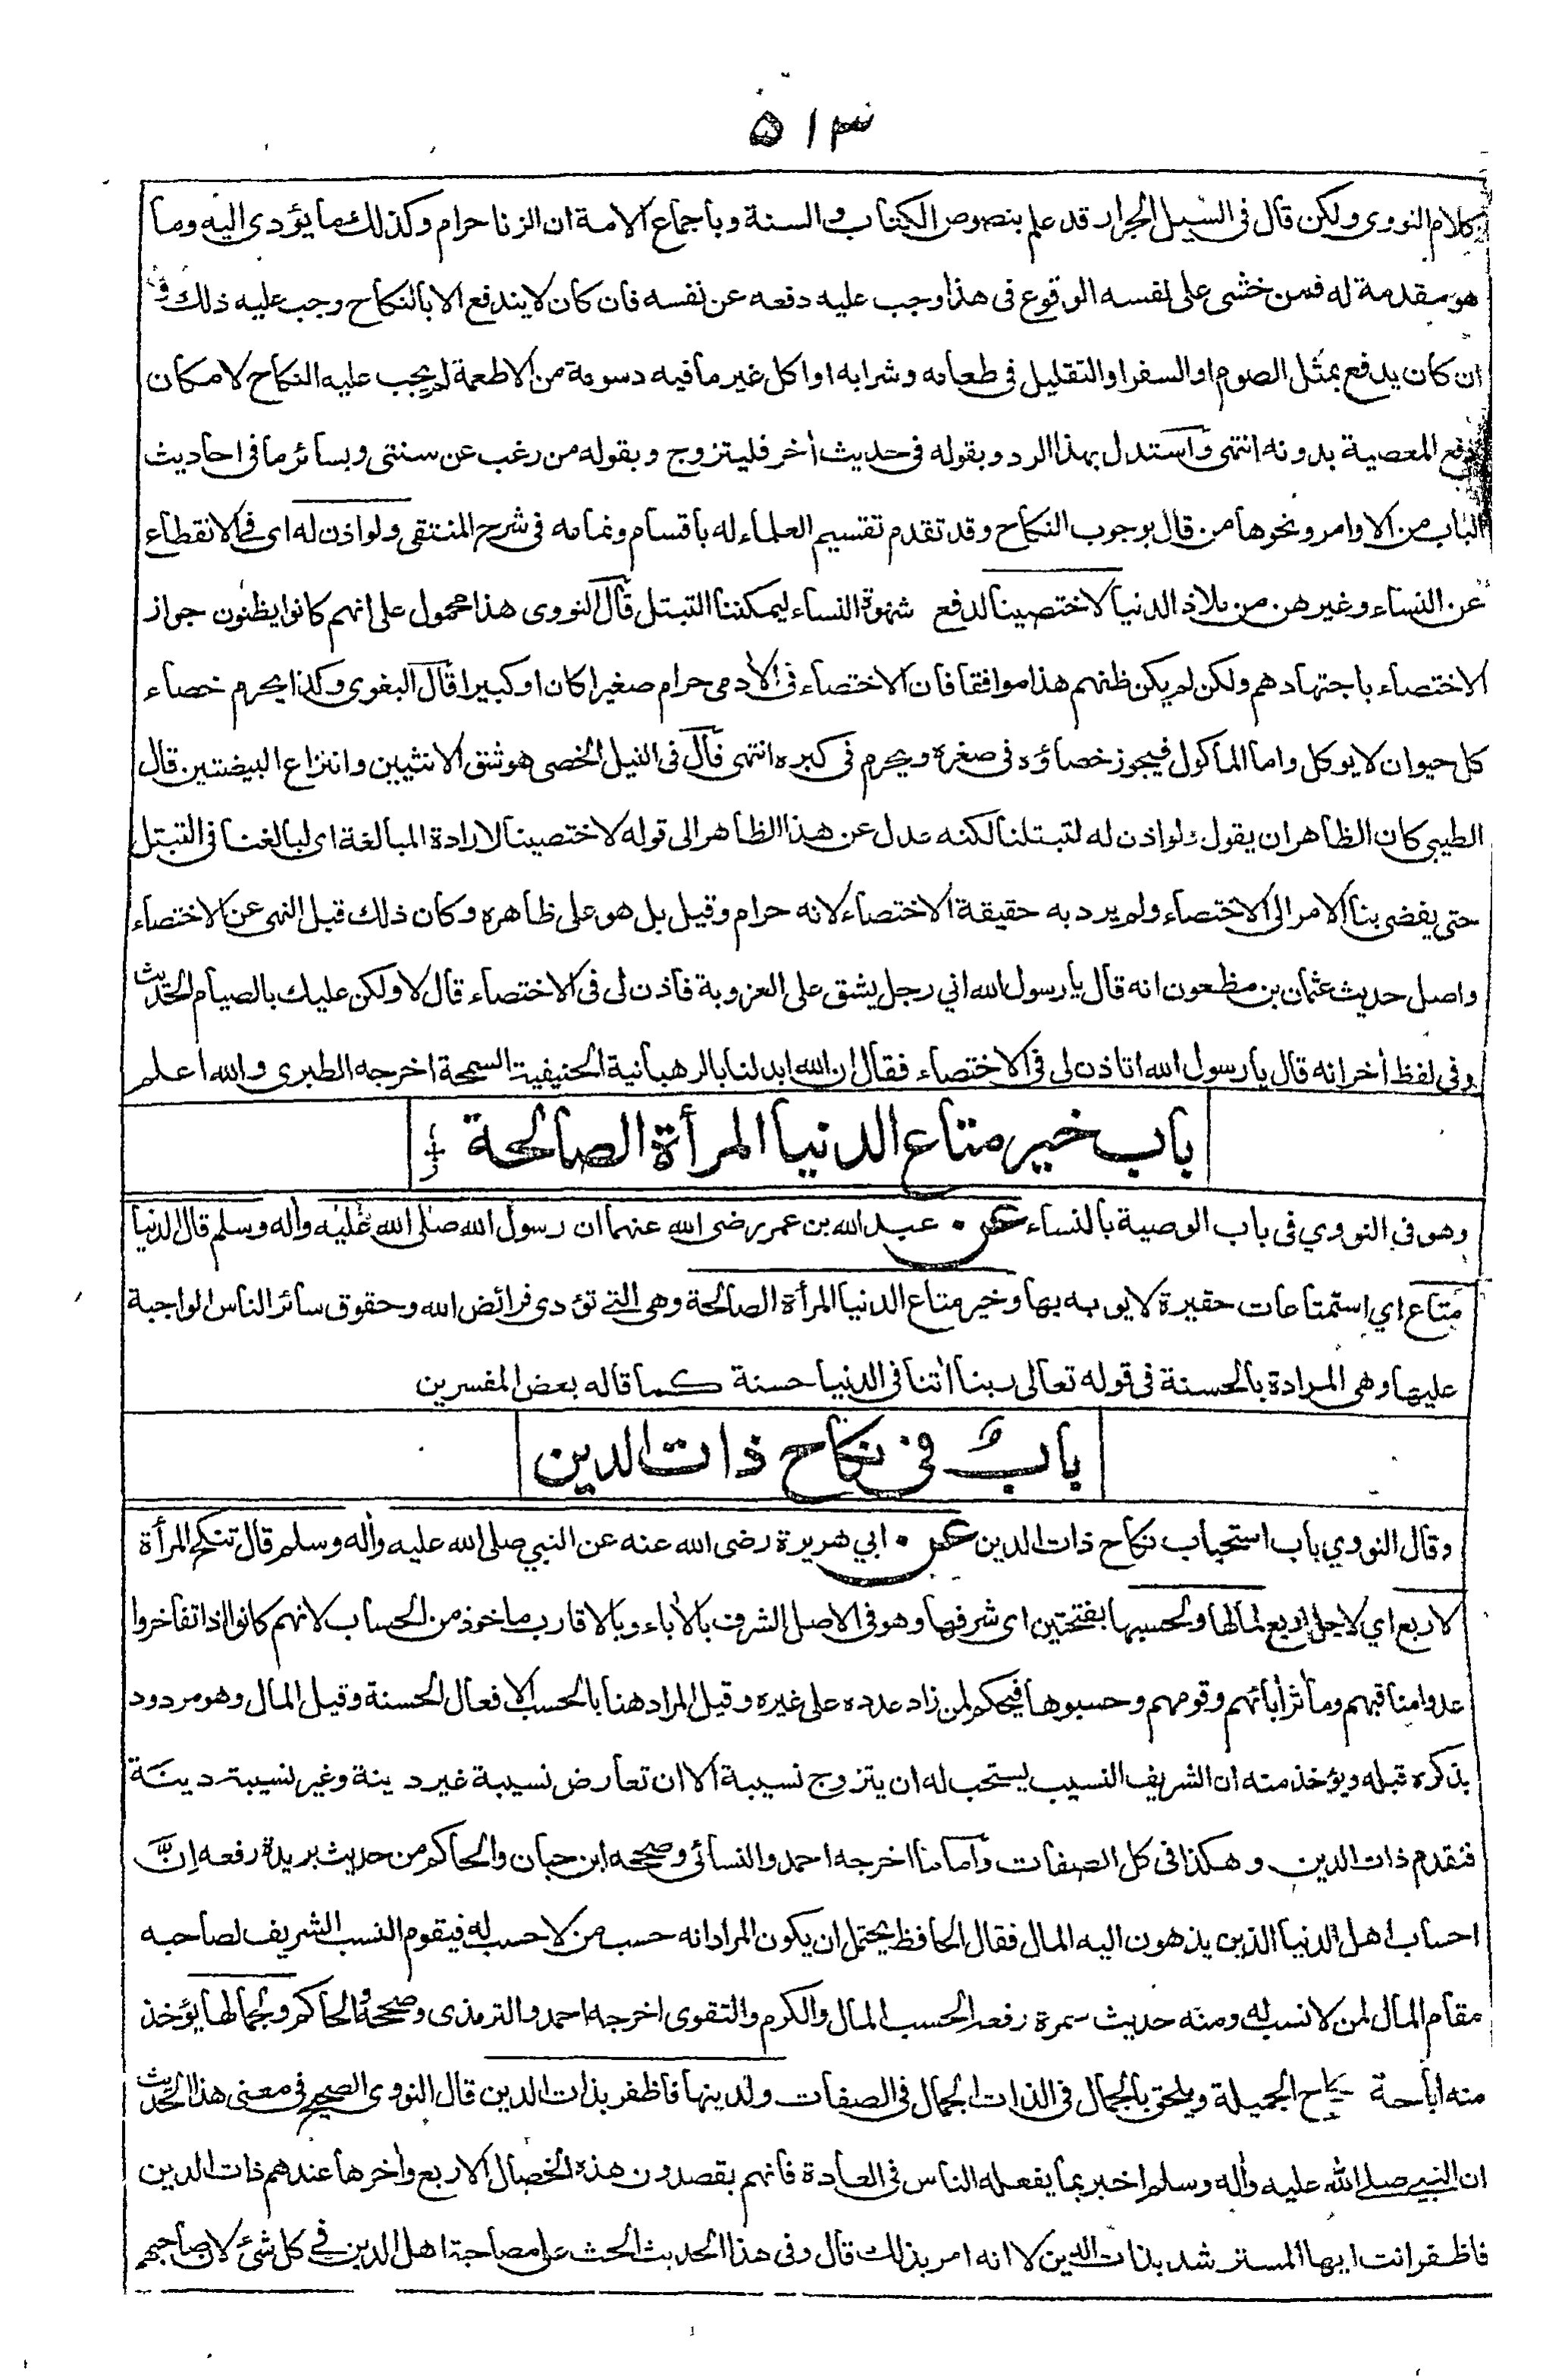 ۵۱۳
كلام النووى ولكن قال فى السيل الجرار قد علم بنصوص الكتاب والسنة وباجماع الامة ان الزنا حرام وكذلك ما يؤدى اليه وما
هو مقدمة له فمن خشى على نفسه الوقوع فى هذا وجب عليه دفعه عن نفسه فان كان لا يندفع الا بالنكاح وجب عليه ذلك و
ان كان يدفع بمثل الصوم او السفر او التقليل فى طعامه وشرابه او اكل غير ما فيه دسومة من الاطعمة لم يجب عليه النكاح لامكان
دفع المعصية بدونه انتهى واستدل بهذا الرد وبقوله فى حديث أخر فليتزوج وبقوله من رغب عن سنتى وبسائر ما فى احاديث
الباب من الاوامر ونحوها من قال بوجوب النكاح وقد تقدم تقسيم العلماء له باقسام وتمامه فى شرح المنتقى ولو اذن له اى فى الانقطاع
عن النساء وغيرهن من ملاذ الدنيا لاختصينا لدفع شهوة النساء ليمكننا التبتل قال النووى هذا محمول على انهم كانوا يظنون جواز
الاختصاء باجتهادهم ولكن لم يكن ظنهم هذا موافقا فان الاختصاء فى الأدمى حرام صغيرا كان او كبيرا قال البغوى وكذا يحرم خصاء
كل حيوان لا يوكل واما المأكول فيجوز خصاؤه فى صغره ويحرم فى كبره انتهى قال فى النيل الخصى هو شق الانثيين وانتزاع البيضتين قال
الطيبى كان الظاهر ان يقول ولو اذن له لتبتلنا لكنه عدل عن هذا الظاهر الى قوله لاختصينا لارادة المبالغة اى لبالغنا فى التبتل
حتى يفضى بنا الامر الى الاختصاء ولم يرد به حقيقة الاختصاء لانه حرام وقيل بل هو على ظاهره وكان ذلك قبل النهى عن الاختصاء
واصل حديث عثمان بن مظعون انه قال يا رسول الله انى رجل يشق على العزوبة فأذن لى فى الاختصاء قال لا ولكن عليك بالصيام الحديث
وفى لفظ أخر انه قال يا رسول الله اتاذن لى فى الاختصاء فقال ان الله ابدلنا بالرهبانية الحنيفية السمحة اخرجه الطبرى والله اعلم
باب خير متاع الدنيا المرأة الصالحة
وهو فى النووي فى باب الوصية بالنساء عن عبد الله بن عمر رضى الله عنهما ان رسول الله صلى الله عليه وأله وسلم قال الدنيا
متاع اي استمتاعات حقيرة لا يوبه بها وخير متاع الدنيا المرأة الصالحة وهى التى تؤدى فرائض الله وحقوق سائر الناس الواجبة
عليها وهى المرادة بالحسنة فى قوله تعالى ربنا اتنا فى الدنيا حسنة كما قاله بعض المفسرين
باب فى نكاح ذات الدين
وقال النووي باب استحباب نكاح ذات الدين عن ابي هريرة رضى الله عنه عن النبي صلى الله عليه وأله وسلم قال تنكح المرأة
لاربع اي لاجل اربع لمالها ولحسبها بفتحتين اى شرفها وهو فى الاصل الشرف بالأباء وبالاقارب ماخوذ من الحساب لانهم كانوا اذا تفاخروا
عدوا مناقبهم ومأثر أبائهم وقومهم وحسبوها فيحكم لمن زاد عدده على غيره وقيل المراد هنا بالحسب الافعال الحسنة وقيل المال وهو مردود
بذكره قبله ويؤخذ منه ان الشريف النسيب يستحب له ان يتزوج نسيبة الا ان تعارض نسيبة غير دينة وغير نسيبة دينة
فتقدم ذات الدين وهكذا فى كل الصفات وأما ما اخرجه احمد والنسائى وصححه ابن حبان والحاكم من حديث بريدة رفعه إنَّ
احساب اهل الدنيا الذين يذهبون اليه المال فقال الحافظ يحتمل ان يكون المراد انه حسب من لا حسب له فيقوم النسب الشريف لصاحبه
مقام المال لمن لا نسب له ومنه حديث سمرة رفعه الحسب المال والكرم والتقوى اخرجه احمد والترمذى وصححه والحاكم ولجمالها يؤخذ
منه اباحة نكاح الجميلة ويلحق بالجمال فى الذات الجمال فى الصفات ولدينها فاظفر بذات الدين قال النووى الصحيح فى معنى هذا الحديث
ان النبى صلى الله عليه وأله وسلم اخبر بما يفعله الناس فى العادة فانهم يقصدون هذه الخصال الاربع وأخرها عندهم ذات الدين
فاظفر انت ايها المسترشد بذات الدين لا انه امر بذلك قال وفى هذا الحديث الحث على مصاحبة اهل الدين فى كل شئ لان صاحبهم